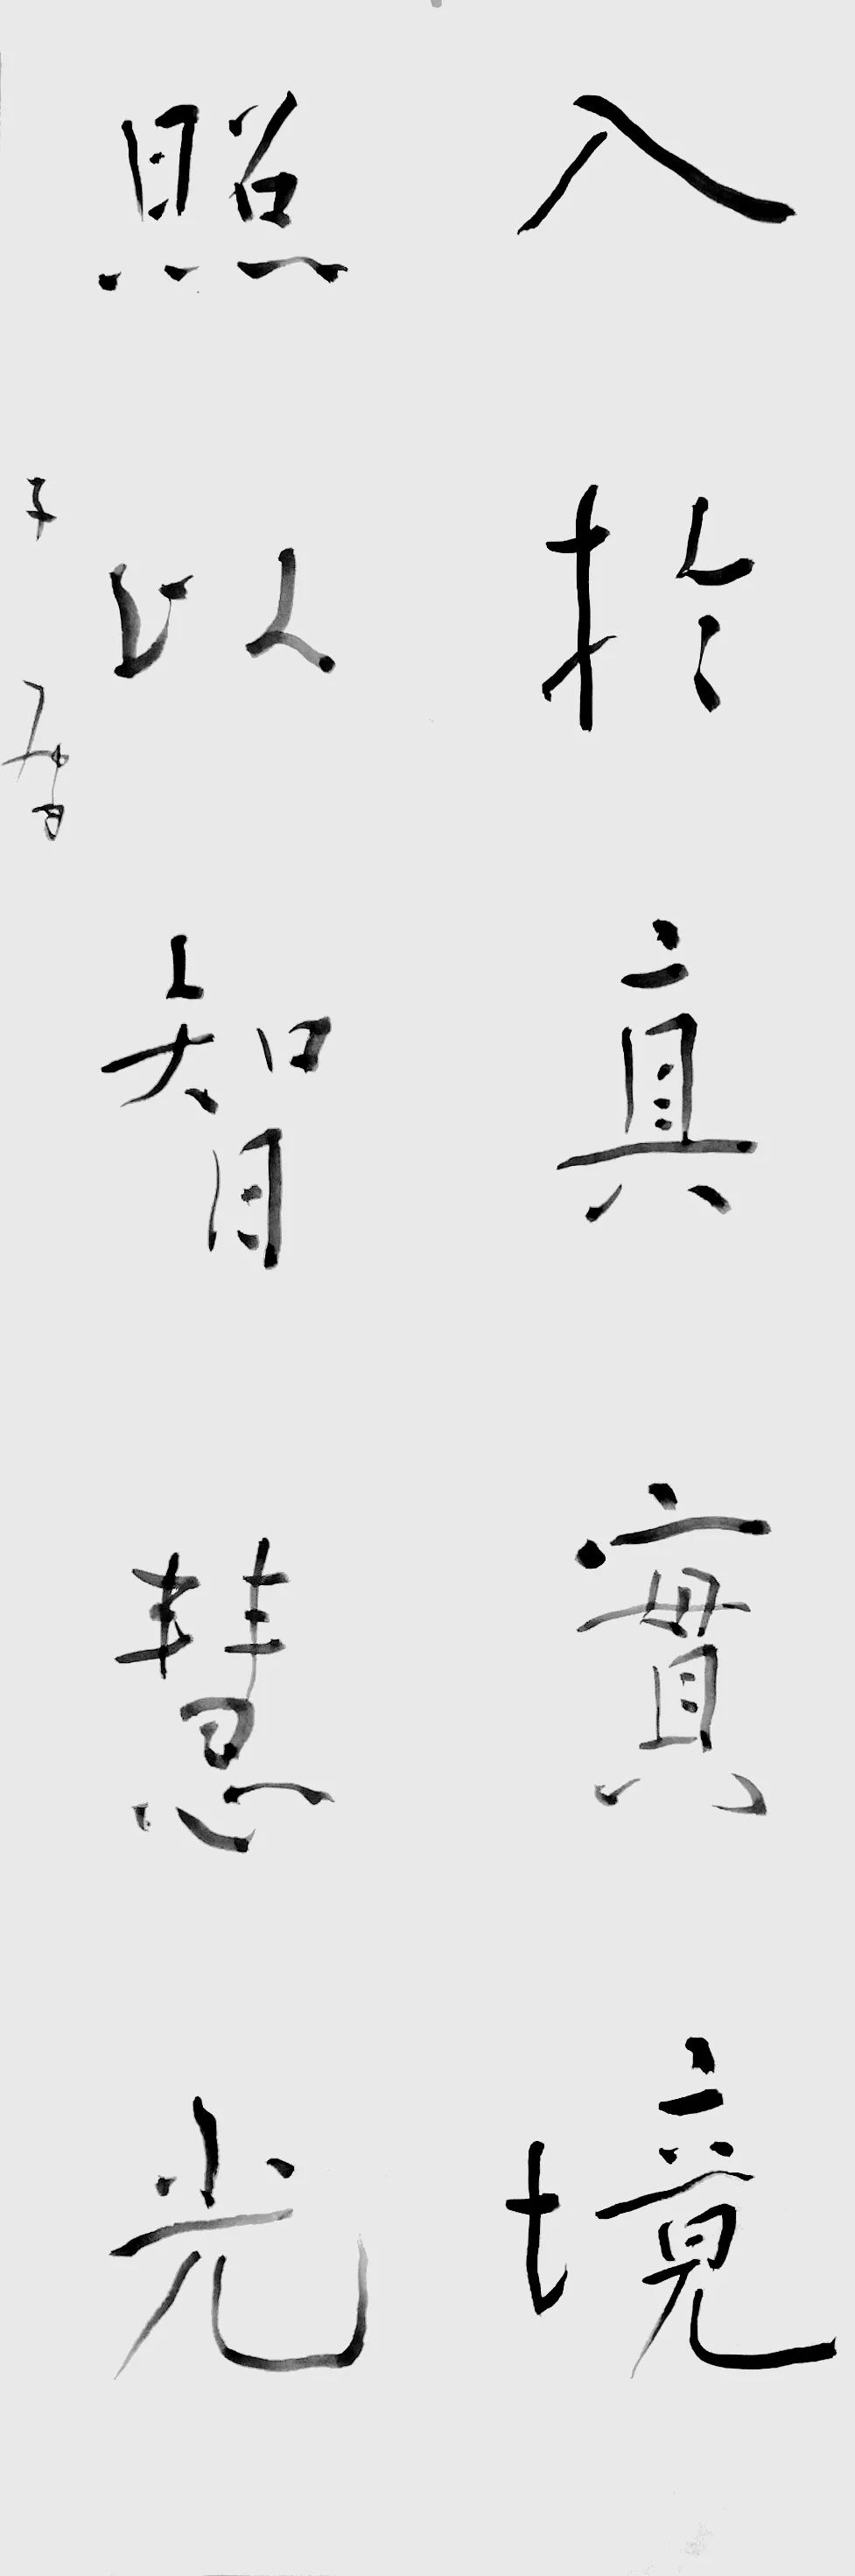 入於真實境
照以智慧光